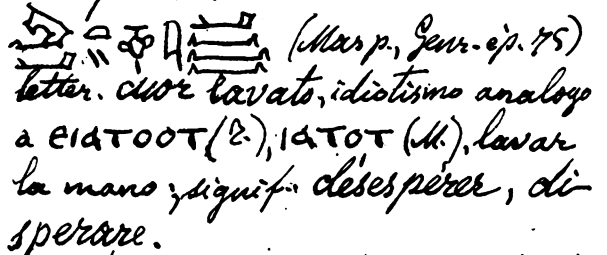 (Masp., Genr. ép. 75)
letter. cuor lavato, idiotismo analogo
a ⲉⲓⲁⲧⲟⲟⲧ (T.), ⲓⲁⲧⲟⲧ (M.), lavar
la mano; signif. désespérer, di-
sperare.